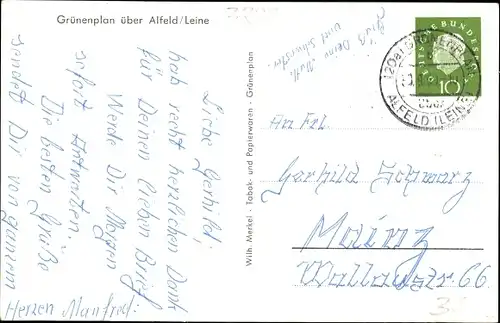 Grünenplan über Alfeld/Leine
Liebe Gerhild,
hab recht herzlichen Dank
für Deinen lieben Brief
Werde Dir Morgen
sofort Antworten
Die besten Grüße
sendet Dir von ganzem
Herzen Manfred.
Gruß Deine Mutti
und Schwester.
Wilh. Merkel - Tabak- und Papierwaren - Grünenplan
DEUTSCHE BUNDESPOST
10
(20a) GRÜNENPLAN
über
ALFELD (LEINE)
An Frl.
Gerhild Schwarz
Mainz
Wallaustr 66